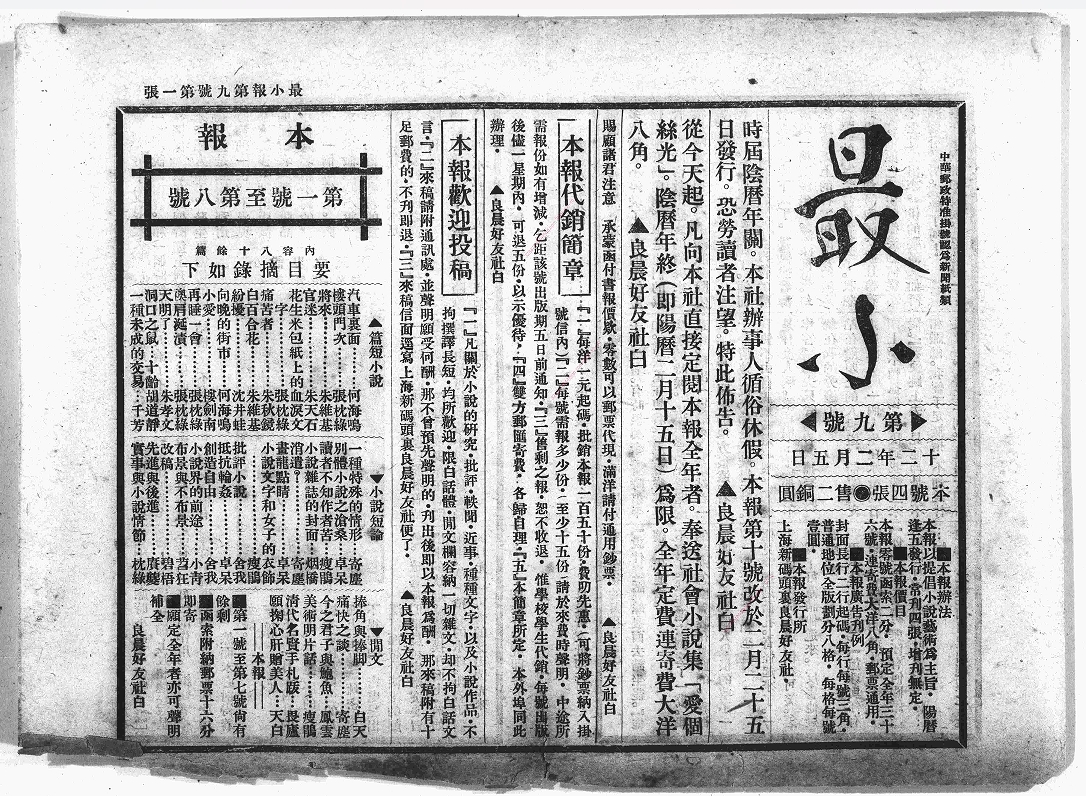 最小報第九號第一張
中華郵政特准掛號認為新聞紙類
最小
第九號
十二年二月五日
本號四張●售二銅圓
■本報辦法
本報以提倡小說藝術為主旨・陽曆
逢五發行・常刊四張・增刊無定・
■本報價目
本報零號函索二分・預定全年三十
六號・連寄費大洋八角・郵票通用・
■本報廣告刊例
封面長行二行起碼・每行每號三角・
普通地位全版劃分八格・每格每號
壹圓・
■本報發行所
上海新碼頭裏良晨好友社・
時屆陰曆年關。本社辦事人循俗休假。本報第十號改於二月二十五
日發行。恐勞讀者注望。特此佈告。 ▲良晨好友社白
從今天起。凡向本社直接定閱本報全年者。奉送社會小說集「愛個
絲光」。陰曆年終(即陽曆二月十五日)為限。全年定費連寄費大洋
八角。 ▲良晨好友社白
賜顧諸君注意 承蒙函付書報價欵・零數可以郵票代現・滿洋請付通用鈔票・ ▲良晨好友社白
本報代銷簡章
『一』每洋一元起碼・批銷本報一百五十份・費助先惠・(可將鈔票納入掛
號信內)『二』每號需報多少份・(至少十五份)請於來費時聲明・中途所
需報份如有增減・乞距該號出版期五日前通知・『三』售剩之報・恕不收退・惟學校學生代銷・每號出版
後儘一星期內・可退五份・以示優待・『四』雙方郵匯寄費・各歸自理・『五』本簡章所定・本外埠同此
辦理・ ▲良晨好友社白
本報歡迎投稿
『一』凡關於小說的研究・批評・軼聞・近事・種種文字・以及小說作品・不
拘撰譯長短・均所歡迎・限白話體・閒文欄容納一切雜文・却不拘白話文
言・『二』來稿請附通訊處・並聲明願受何酬・那不曾預先聲明的・刊出後即以本報為酬・那來稿附有十
足郵費的・不刊即退・『三』來稿信面逕寫上海新碼頭裏良晨好友社便了・ ▲良晨好友社白
本報
第一號至第八號
內容八十餘篇
要目摘錄如下
▲篇短小說
汽車裏面……何海鳴
樓頭門次……張枕綠
將來……朱維基
官迷……朱天石
花生米包紙上的血淚文
一字……張枕綠
痛苦者……朱秋鏡
白百合花……朱維基
紛擾……沈井蛙
向晚的街市……何海鳴
小愛……樓劍南
再睡一會……張枕綠
奧肩毹漬……張枕綠
天明了……朱孝文
洞口之鼠…十齡胡道靜
一種未成的交易…千芳
▼小說短論
一種特殊的情形…寄塵
別體小說之滄桑…卓呆
讀者不知作者苦…瘦鵑
小說雜誌的封面…烟橋
消遣？……寄塵
畫龍點睛……卓呆
小說文字和女子的衣飾
……瘦鵑
批評小說……舍我
抵抗輪姦……卓呆
創造自由……舍我
小說界的前途…小青
布景與不布景…苕狂
改稿……碧梧
先進與後進……賡夔
實事與小說情節…枕綠
▼閒文
捧角與捧脚……白天
痛快之談……寄塵
今之君子與鮑魚…鳳雲
美術明片話……瘦鵑
清代名賢手札跋…畏廬
願掬心肝贈美人…天白
——本報——
■第一號至第七號尙有
餘剩
■函索附納郵票十六分
即寄
■願定全年者亦可聲明
補全
良晨好友社白